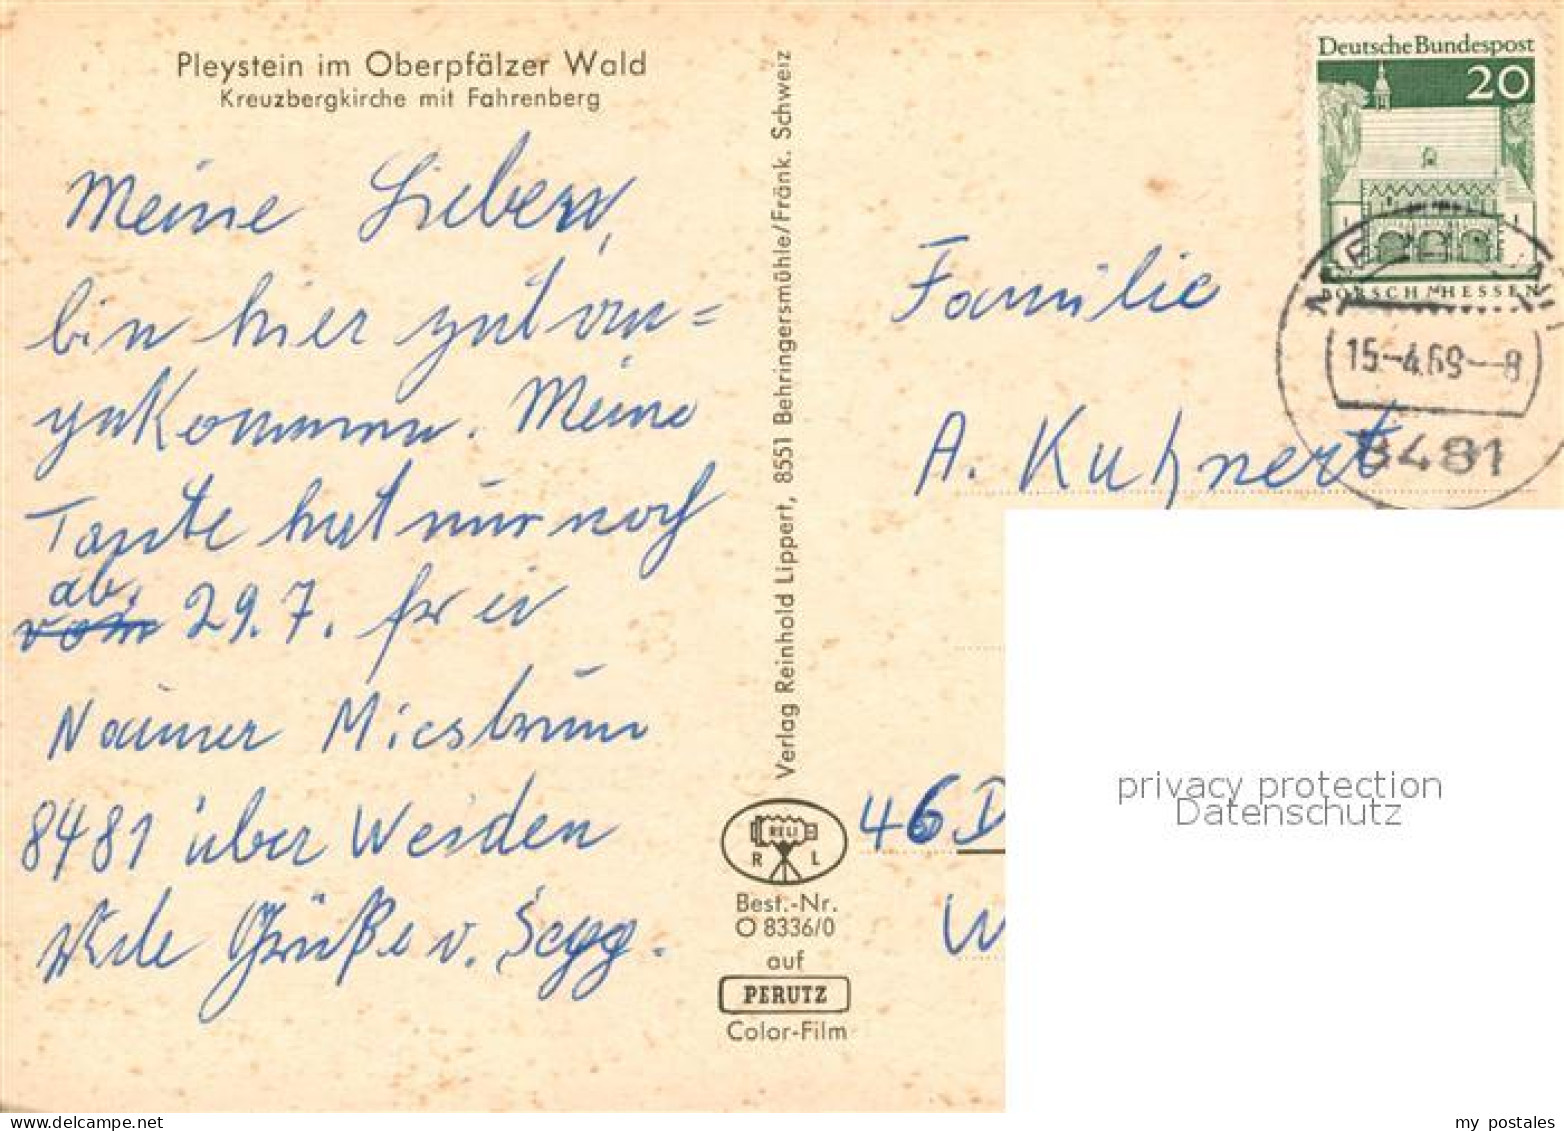 Pleystein im Oberpfälzer Wald
Kreuzbergkirche mit Fahrenberg
Meine Lieben,
bin hier gut an=
gekommen. Meine
Tante hat nur noch
ab
vom 29.7. frei
Naimer Miesbrunn
8481 über Weiden
Viele Grüße v. Segg.
Verlag Reinhold Lippert, 8551 Behringersmühle/Fränk. Schweiz
RELI
R L
Best.-Nr.
O 8336/0
auf
PERUTZ
Color-Film
Deutsche Bundespost
20
LORSCH/HESSEN
15.-4.69--8
8481
Familie
A. Kuhnert
46 D
W
privacy protection
Datenschutz
delcampe.net
my_postales